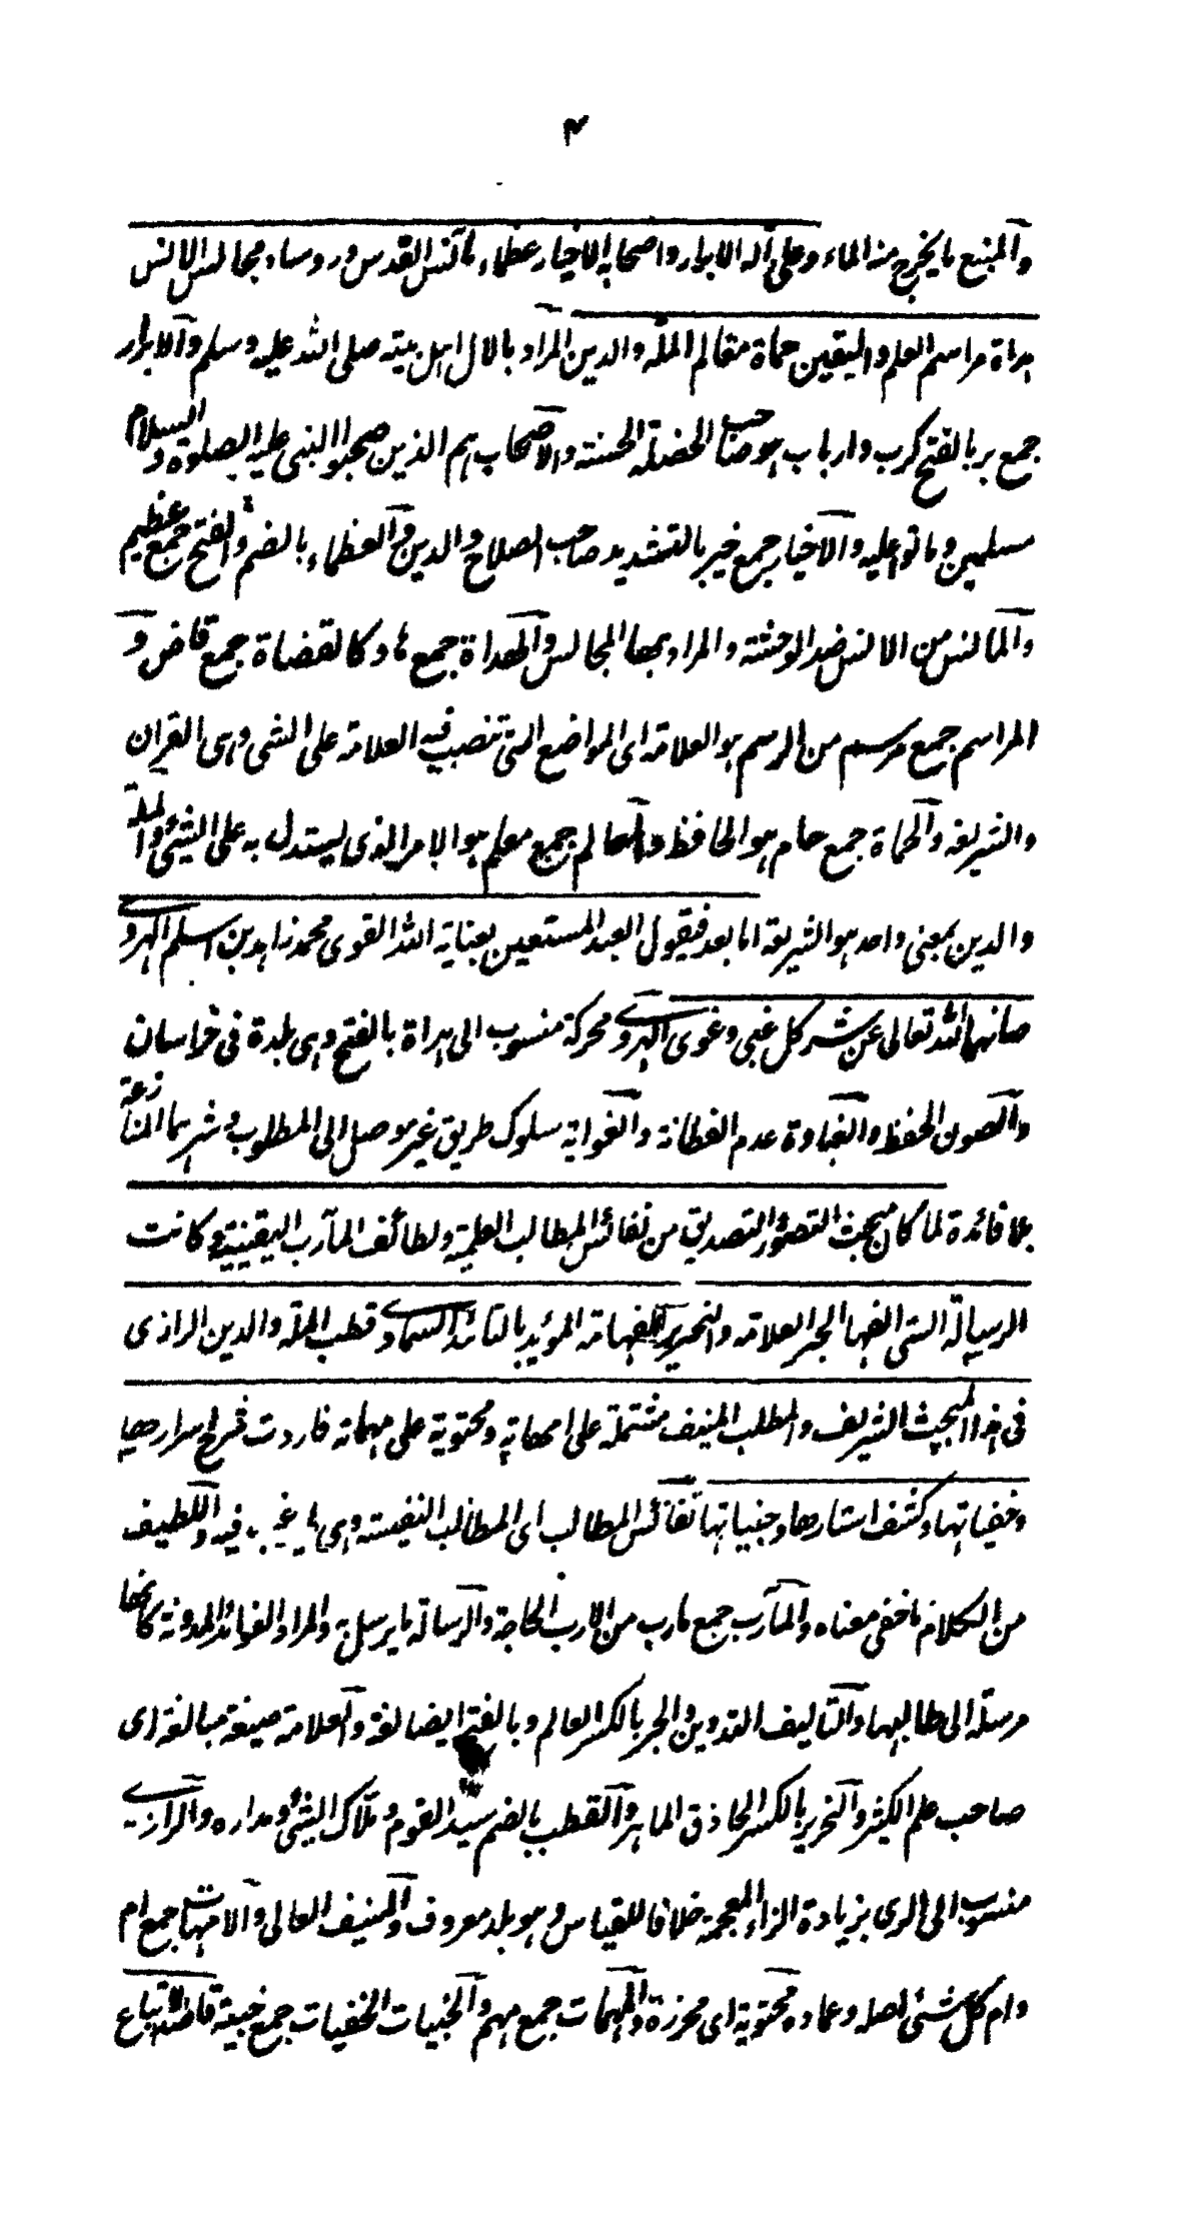 ٣
والمنبع ما يخرج منه الماء وعلى آله الابرار واصحابه الاخيار عظماء مآنس القدس وروساء مجالس الانس
هداة مراسم العلم واليقين حماة معالم الملة والدين المراد بالال اهل بيته صلى الله عليه وسلم والابرار
جمع بر بالفتح كرب وارباب هو صاحب الخصلة الحسنة والاصحاب هم الذين صحبوا النبى عليه الصلوة والسلام
مسلمين وماتوا عليه والاخيار جمع خير بالتشديد صاحب الصلاح والدين والعظماء بالضم والفتح جمع عظيم
والمآنس من الانس ضد الوحشة والمراد بها المجالس والهداة جمع هاد كالقضاة جمع قاض و
المراسم جمع مرسم من الرسم هو العلامة اى المواضع التى تنصب فيه العلامة على الشى وهى القران
والشريعة والحماة جمع حام هو الحافظ والمعالم جمع معلم هو الامر الذى يستدل به على الشئ والملة
والدين بمعنى واحد هو الشريعة اما بعد فيقول العبد المستعين بعناية الله القوى محمد زاهد بن اسلم الهروى
صانهما الله تعالى عن شر كل غبى وغوى الهروى محركة منسوب الى هراة بالفتح وهى بلدة فى خراسان
والصون الحفظ والغباوة عدم الفطانة والغواية سلوك طريق غير موصل الى المطلوب وشرهما المنازعة
بلا فائدة لما كان مبحث التصور والتصديق من نفائس المطالب العلمية ولطائف المآرب اليقينية وكانت
الرسالة التى الفها الحبر العلامة والنحرير الفهامة المؤيد بالتائد السماوى قطب الملة والدين الرازى
فى هذا المبحث الشريف والمطلب المنيف مشتملة على امهاته ومحتوية على مهماته فاردت شرح اسرارها
وخفياتها وكشف استارها وخبياتها نفائس المطالب اى المطالب النفيسة وهى ما يرغب فيه واللطيف
من الكلام ما خفى معناه والمآرب جمع مارب من الارب الحاجة والرسالة ما يرسل والمراد الفوائد المدونة كانها
مرسلة الى طالبيها والتاليف التدوين والحبر بالكسر العالم وبالفتح ايضا لغة والعلامة صيغة مبالغة اى
صاحب علم الكثير والنحرير بالكسر الحاذق الماهر والقطب بالضم سيد القوم وملاك الشئ ومداره والرازى
منسوب الى الرى بزيادة الزاء المعجمة خلافا للقياس وهو بلد معروف والمنيف العالى والامهات جمع ام
وام كل شئ اصله وعماده محتوية اى محرزة والمهمات جمع مهم والخبيات الخفيات جمع خبية